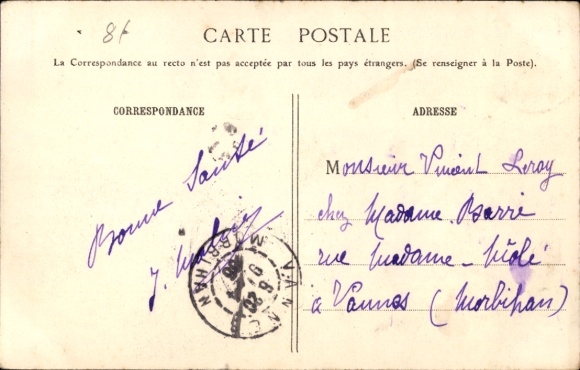 86
CARTE POSTALE
La Correspondance au recto n'est pas acceptée par tous les pays étrangers. (Se renseigner à la Poste).
CORRESPONDANCE
Bonne Santé
J.
VANNES
MORBIHAN
ADRESSE
Monsieur Vincent Leray
chez Madame Barré
rue Madame-Molé
à Vannes (Morbihan)